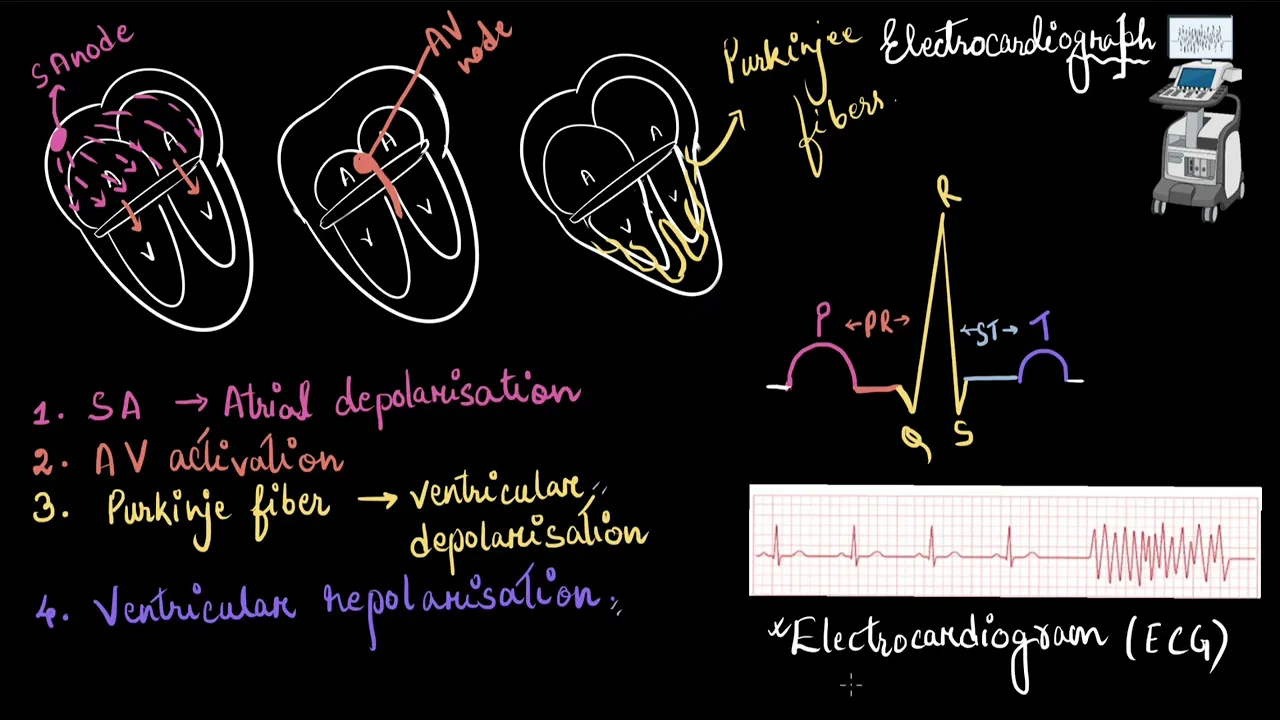 SA node
AV
node
Purkinjee
fibers.
Electrocardiograph
A
A
V
V
A
A
V
V
A
A
V
V
R
P
PR
ST
T
Q
S
1. SA → Atrial depolarisation
2. AV activation
3. Purkinje fiber → ventricular
depolarisation
4. Ventricular repolarisation.
*Electrocardiogram (ECG)